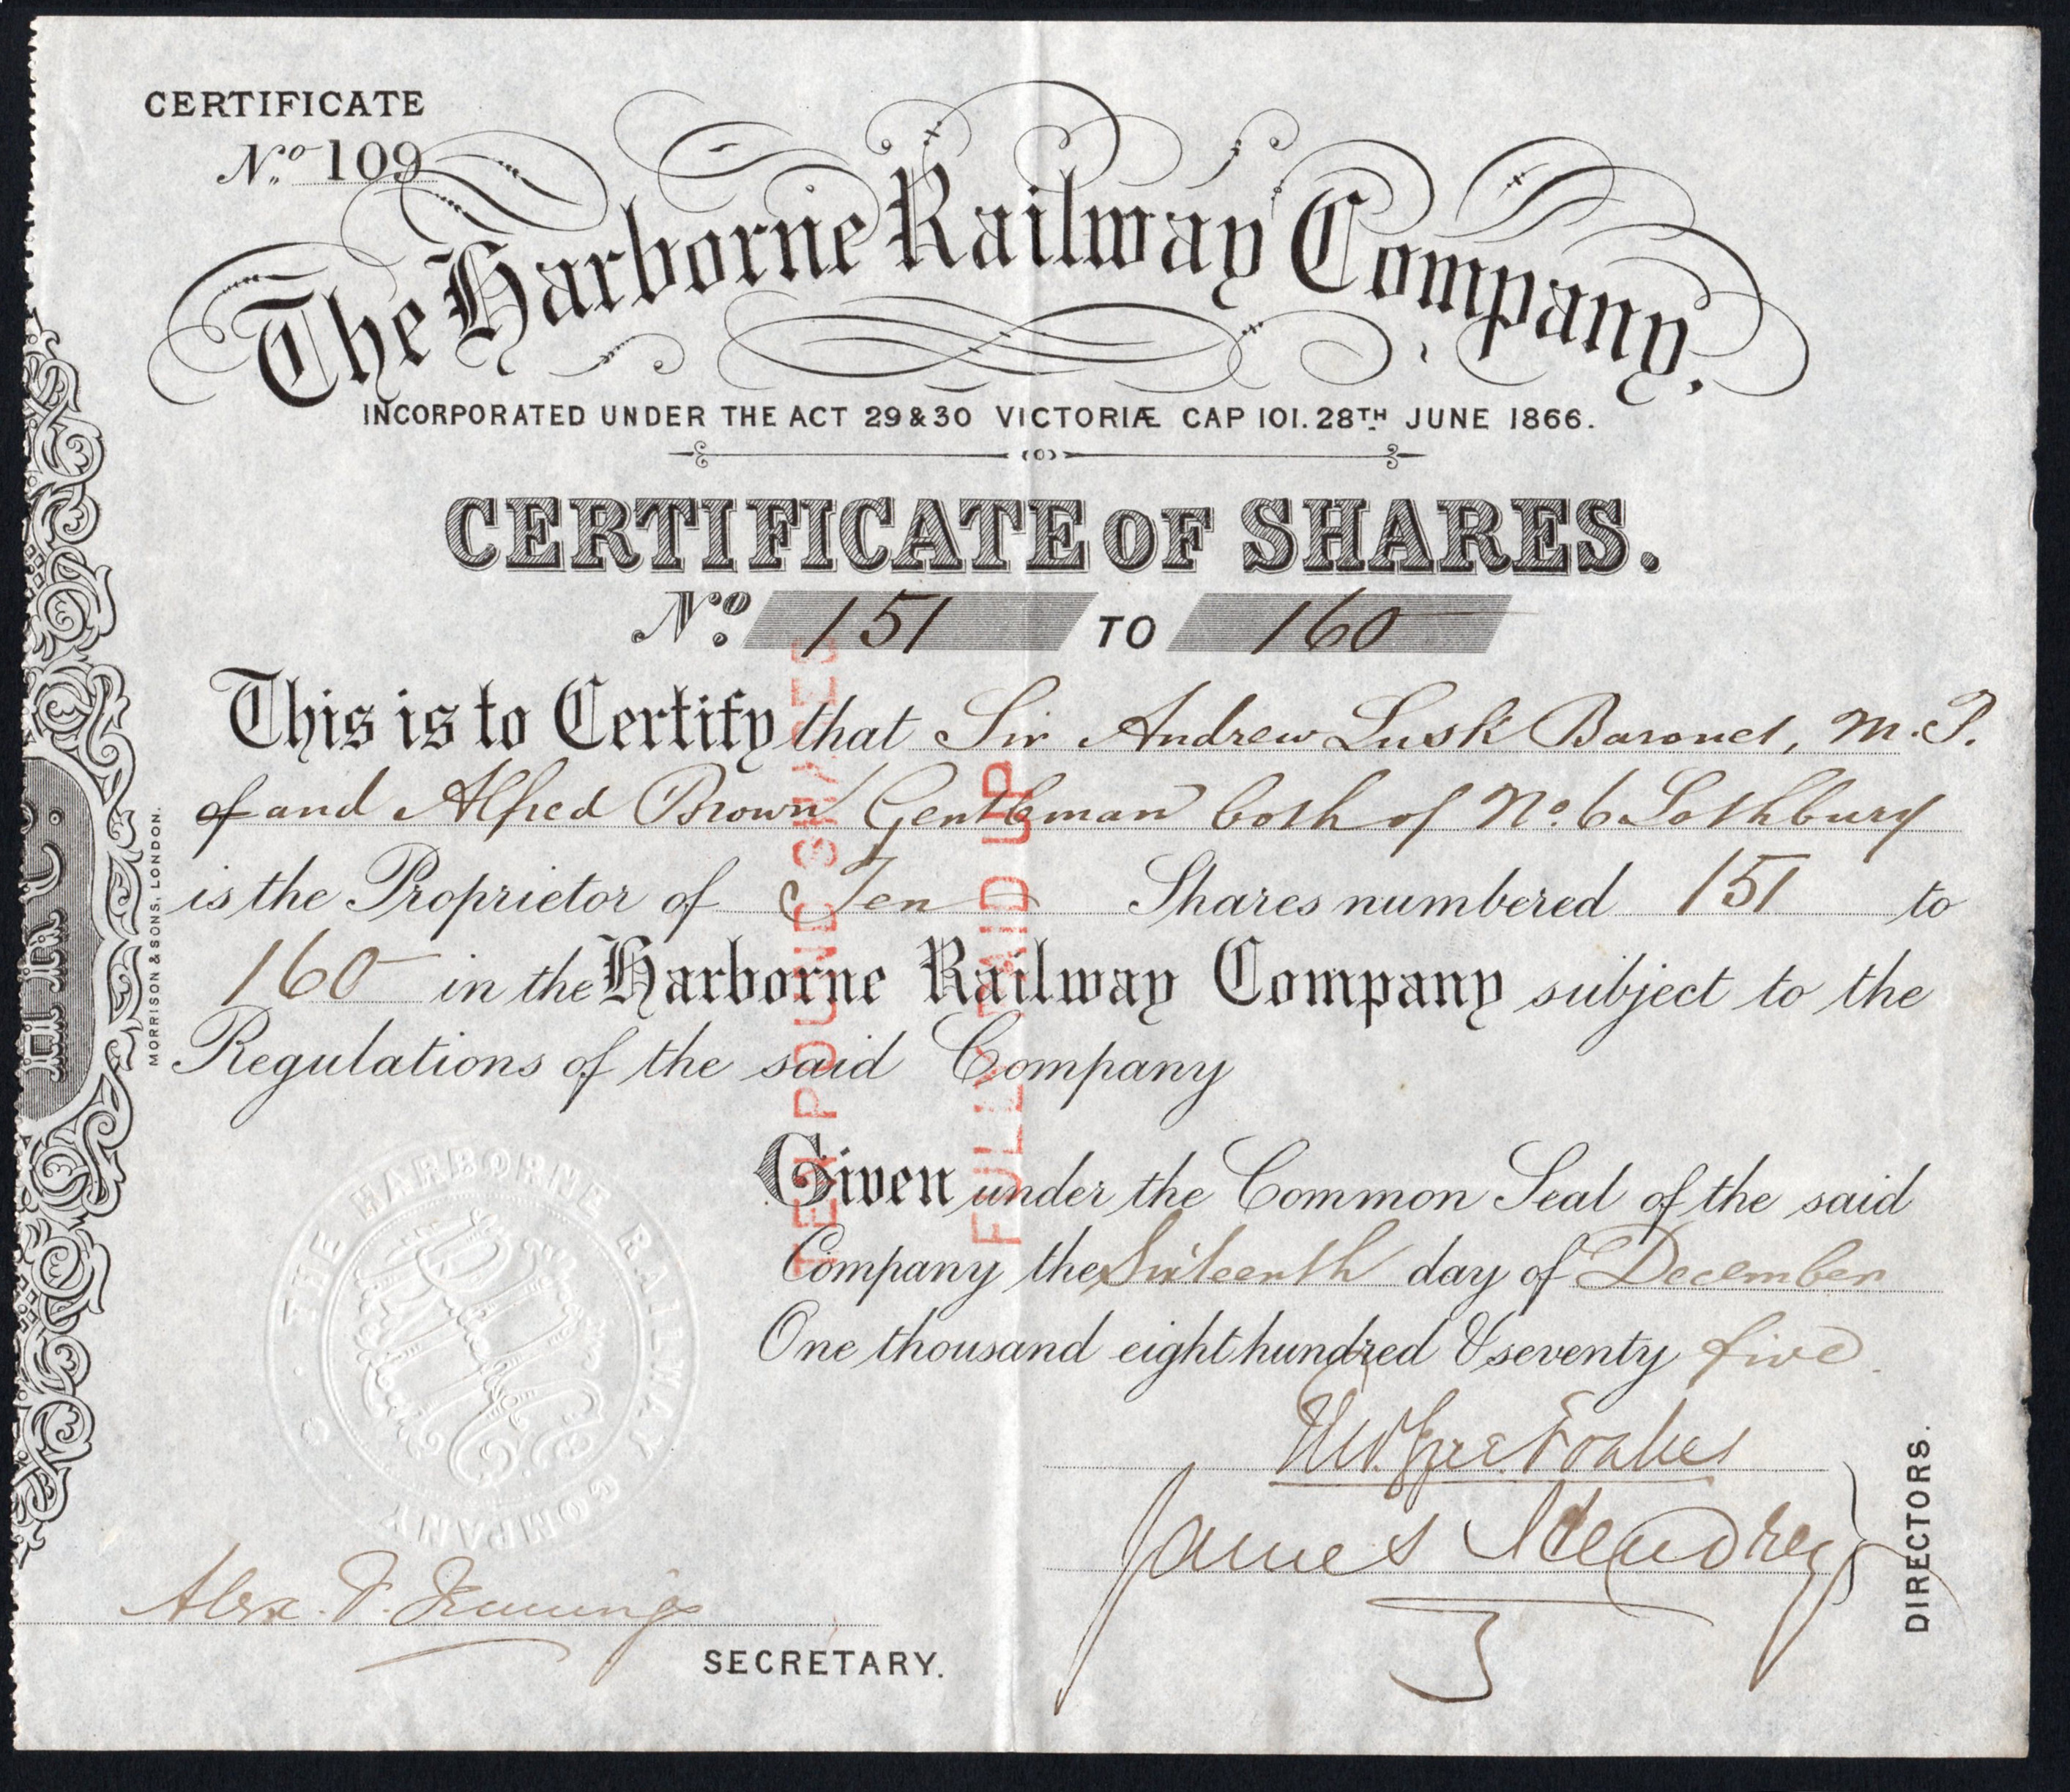 CERTIFICATE
No. 109
The Harborne Railway Company,
INCORPORATED UNDER THE ACT 29 & 30 VICTORIÆ CAP 101. 28TH JUNE 1866.
CERTIFICATE OF SHARES.
No. 151 TO 160
This is to Certify that Sir Andrew Lusk Baronet, M.P.
of and Alfred Brown Gentleman both of No. 6 Lothbury
is the Proprietor of Ten Shares numbered 151 to
160 in the Harborne Railway Company subject to the
Regulations of the said Company
Given under the Common Seal of the said
Company the Sixteenth day of December
One thousand eight hundred & seventy five
James Hendrey
DIRECTORS.
Alex. P. Jennings
SECRETARY.
TEN POUND SHARES
FULLY PAID UP
THE HARBORNE RAILWAY COMPANY
MORRISON & SONS, LONDON.